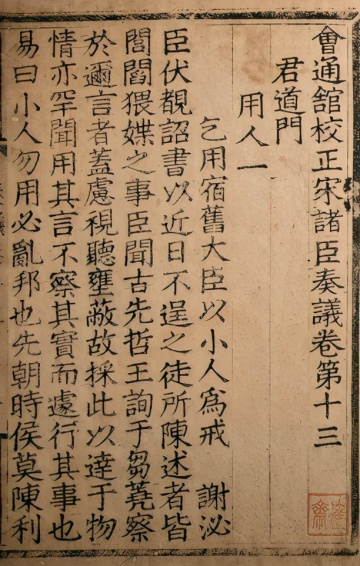 會通舘校正宋諸臣奏議卷第十三
君道門
用人一
乞用宿舊大臣以小人爲戒 謝泌
臣伏覩詔書以近日不逞之徒所陳述者皆
閭閻猥媟之事臣聞古先哲王詢于芻蕘察
於邇言者蓋慮視聽壅蔽故採此以達于物
情亦罕聞用其言不察其實而遽行其事也
易曰小人勿用必亂邦也先朝時侯莫陳利